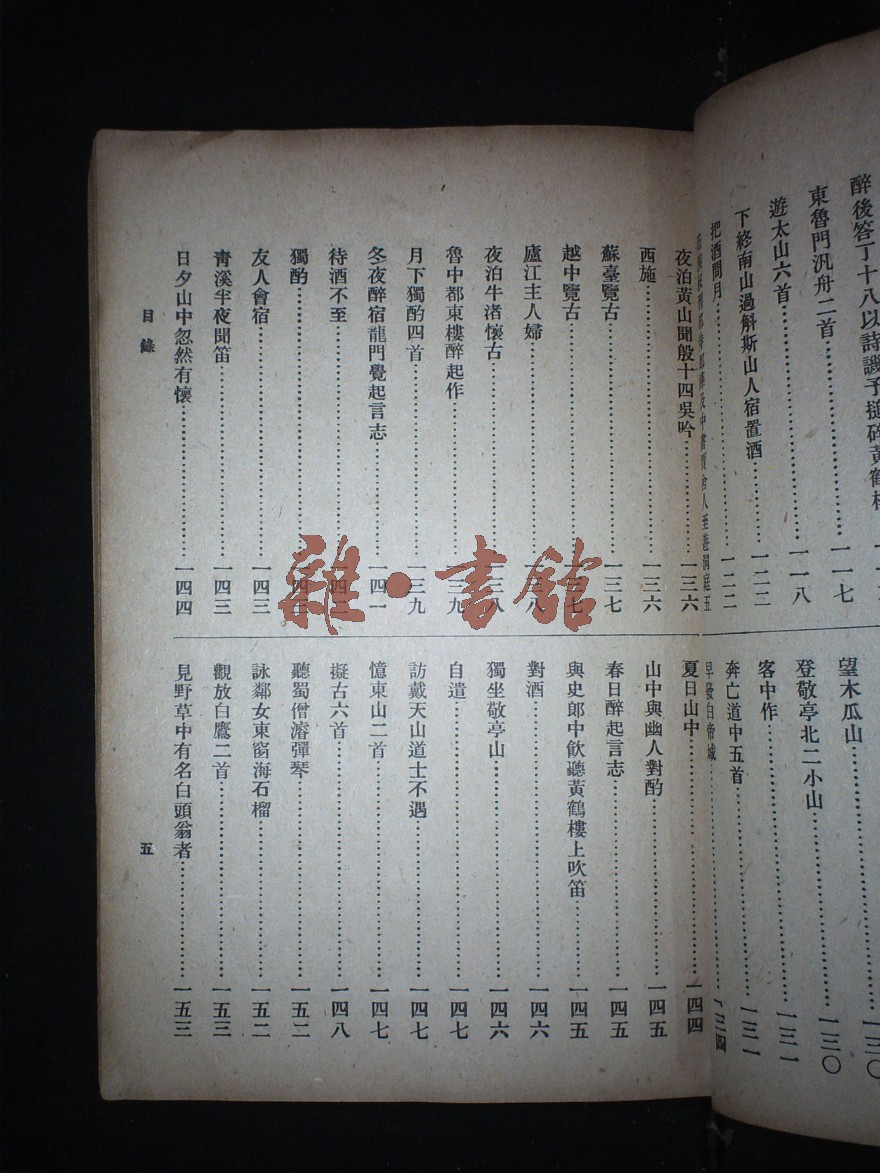 醉後答丁十八以詩譏予搥碎黃鶴樓
東魯門汎舟二首……一一七
遊太山六首……一一八
下終南山過斛斯山人宿置酒……一二二
把酒問月……一二二
望木瓜山……一三〇
登敬亭北二小山……一三〇
客中作……一三一
奔亡道中五首……一三一
早發白帝城……一三四
夜泊黃山聞殷十四吳吟……一三六
西施……一三六
蘇臺覽古……一三七
越中覽古……一三七
廬江主人婦……一三八
夜泊牛渚懷古……一三八
魯中都東樓醉起作……一三九
月下獨酌四首……一三九
冬夜醉宿龍門覺起言志……一四一
待酒不至……一四二
獨酌……一四三
友人會宿……一四三
青溪半夜聞笛……一四三
日夕山中忽然有懷……一四四
夏日山中……一四四
山中與幽人對酌……一四五
春日醉起言志……一四五
與史郎中飲聽黃鶴樓上吹笛……一四五
對酒……一四六
獨坐敬亭山……一四六
自遣……一四七
訪戴天山道士不遇……一四七
憶東山二首……一四七
擬古六首……一四八
聽蜀僧濬彈琴……一五二
詠鄰女東窗海石榴……一五二
觀放白鷹二首……一五三
見野草中有名白頭翁者……一五三
目錄
五
雜·書館